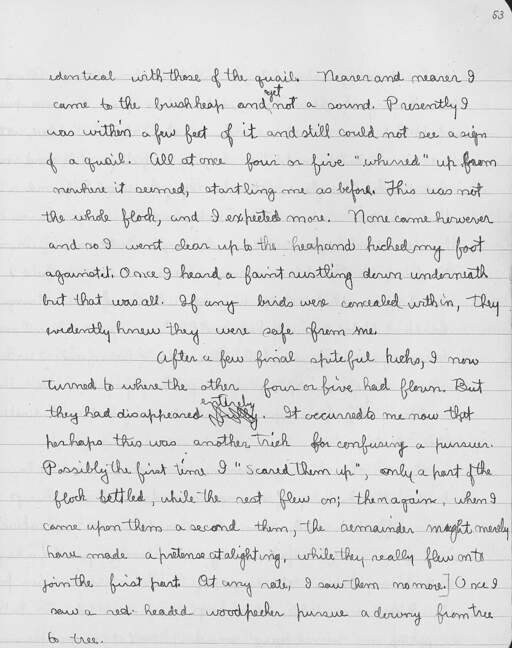 53
identical with those of the quail. Nearer and nearer I
came to the brushheap and yet not a sound. Presently I
was within a few feet of it and still could not see a sign
of a quail. All at once four or five "whirred" up from
nowhere it seemed, startling me as before. This was not
the whole flock, and I expected more. None came however
and so I went clear up to the heap and kicked my foot
against it. Once I heard a faint rustling down underneath
but that was all. If any birds were concealed within, they
evidently knew they were safe from me.
After a few final spiteful kicks, I now
turned to where the other four or five had flown. But
they had disappeared entirely. It occurred to me now that
perhaps this was another trick for confusing a pursuer.
Possibly the first time I "scared them up", only a part of the
flock settled, while the rest flew on; then again, when I
came upon them a second them, the remainder might merely
have made a pretense at alighting, while they really flew on to
join the first part. At any rate, I saw them no more.] Once I
saw a red-headed woodpecker pursue a downy from tree
to tree.